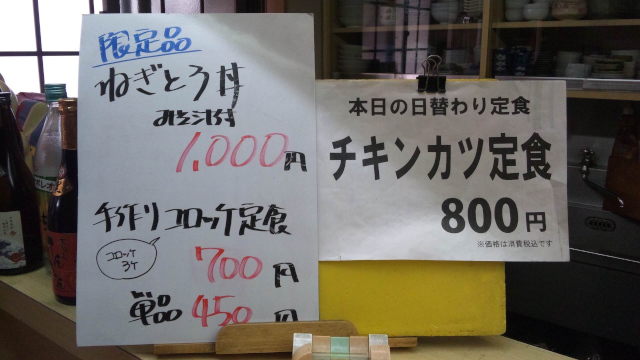 限定品
ねぎとろ丼
みそ汁付
1,000円
手作りコロッケ定食
コロッケ
3ケ
700円
単品 450円
本日の日替わり定食
チキンカツ定食
800円
※価格は消費税込です